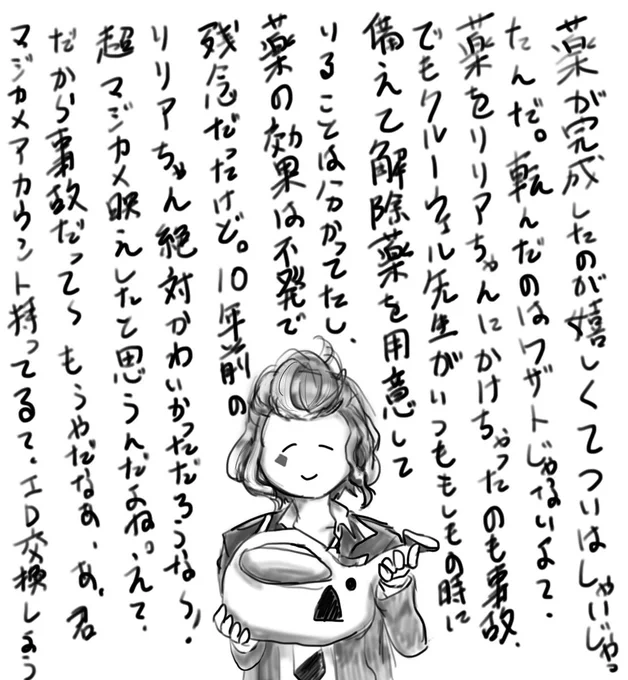 薬が完成したのが嬉しくてついはしゃいじゃっ
たんだ。転んだのはワザトじゃないよて.
薬をリリアちゃんにかけちゃったのも事故.
でもクルーウェル先生がいつももしもの時に
備えて解除薬を用意して
いることは分かってたし、
薬の効果は不発で
残念だったけど。10年前の
リリアちゃん絶対かわいかっただろうな〜!
超マジカメ映えしたと思うんだよね。えて.
だから事故だって〜もうやだなあ、あ、君
マジカメアカウント持ってるて.ID交換しよう